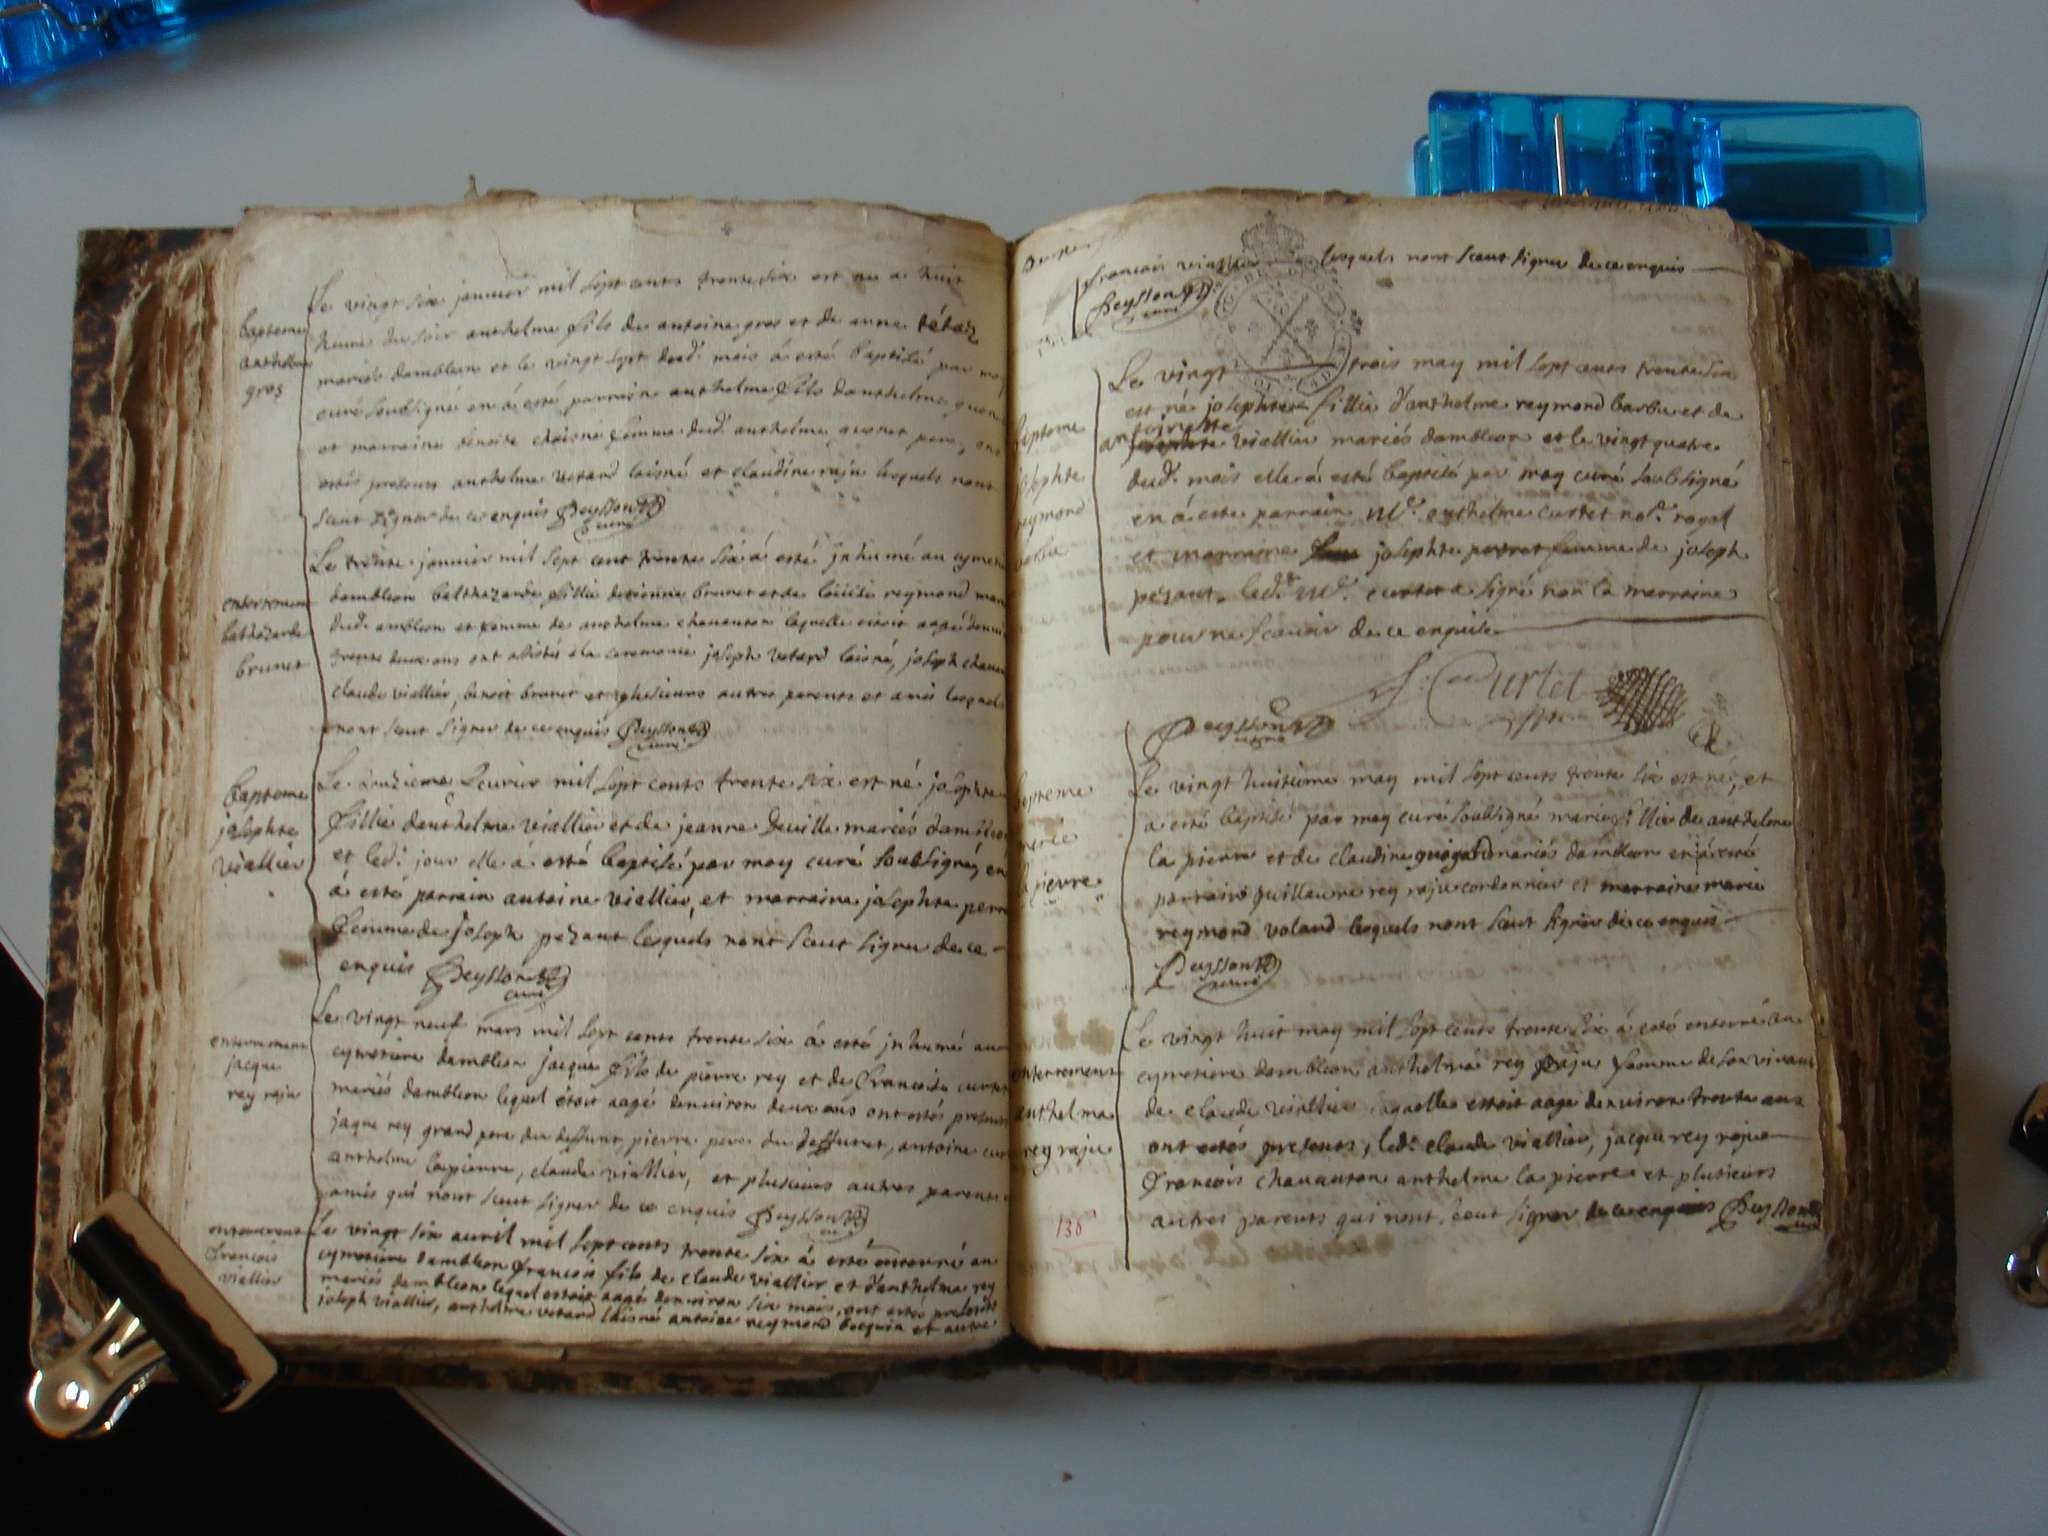 Le vingt six janvier mil sept cents trente six est né a huit
bapteme
anthelme
gros
heure du soir anthelme fils de antoine gros et de anne tétaz
mariés dambleon et le vingt sept dud. mois á esté baptisé par moy
curé soubsigné en á esté parrain anthelme fils danthelme
et marraine benoite femme dud. anthelme
estés presents anthelme vetard laisné et claudine raju lesquels nont
sceut signer de ce enquis Peysson
curé
Le trente janvier mil sept cent trente six á esté jnhumé au cymet
enterrement
balthazarde
brunet
dambleon balthazarde fillie detienne brunet et de loüise reymond mar
dud. ambleon et femme de anthelme chavanton laquelle étoit aagé denvi
trente deux ans ont assistés á la ceremonie joseph vetard laisné, joseph chavan
claude viallier, benoit brunet et plusieurs autres parents et amis lesquels
nont sceut signer de ce enquis Peysson
curé
bapteme
josephte
viallier
Le fevrier mil sept cents trente six est né josephte
fillie danthelme viallier et de jeanne deville mariés dambleon
et led. jour elle á esté baptisé par moy curé soubsigné, en
á esté parrain antoine viallier, et marraine josephte perr
femme de joseph pezant lesquels nont sceut signer de ce
enquis Peysson
curé
enterrement
jacque
rey raju
Le vingt neuf mars mil sept cents trente six á esté jnhumé au
cymetiere dambleon jacque fils de pierre rey et de francoise curtet
mariés dambleon lequel étoit aagé denviron deux ans ont estés presents
jaque rey grand pere du deffunt, pierre pere du deffunt, antoine cur
anthelme lapierre, claude viallier, et plusieurs autres parents
amis qui nont sceut signer de ce enquis Peysson
enterrement
francois
viallier
Le vingt six avril mil sept cents trente six á esté enterré au
cymetiere dambleon francois fils de claude viallier et danthelma rey
mariés dambleon lequel estoit aagé denviron six mois, ont estés presents
joseph viallier, anthelme vetard laisné antoine reymond bocquin et autre
francois viallier lesquels nont sceut signer de ce enquis
Peysson
curé
bapteme
josephte
reymond
barbu
Le vingt trois may mil sept cents trente six
est né josephte fillie danthelme reymond barbu et de
antoinette viallier mariés dambleon et le vingt quatre
dud. mois elle á esté baptisé par moy curé soubsigné
en á esté parrain M. anthelme curtet no. royal
et marraine josephte perret femme de joseph
pezant, led. M. curtet a signé non la marraine
pour ne scavoir de ce enquise
Curtet
Peysson
curé
bapteme
marie
la pierre
Le vingt huitieme may mil sept cents trente six est né, et
a esté baptisé par moy curé soubsigné marie fillie de anthelme
la pierre et de claudine mariés dambleon en á esté
parrain guillaume rey raju cordonnier et marraine marie
reymond voland lesquels nont sceut signer de ce enquis
Peysson
curé
enterrement
anthelma
rey raju
Le vingt huit may mil sept cents trente six á esté enterré au
cymetiere dambleon anthelma rey raju femme de son vivant
de claude viallier laquelle estoit aagé denviron trente ans
ont estés presents, led. claude viallier, jacque rey raju
francois chavanton anthelme la pierre et plusieurs
autres parents qui nont sceut signer de ce enquis Peysson
curé
138